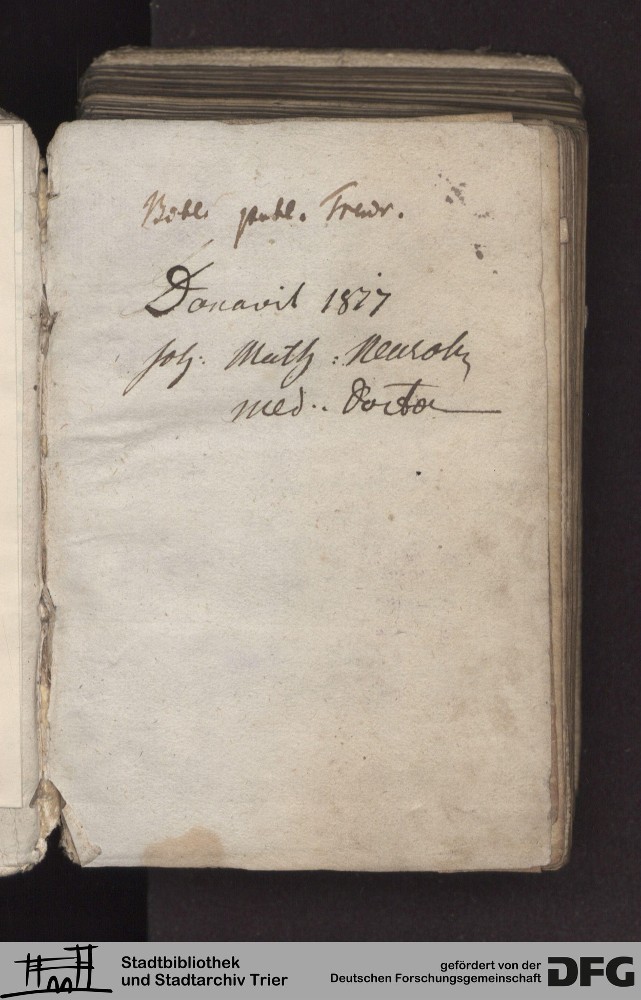 Bibl. publ. Trevir.
Donavit 1817
Joh: Math:
med.. Doctor
Stadtbibliothek
und Stadtarchiv Trier
gefördert von der
Deutschen Forschungsgemeinschaft
DFG